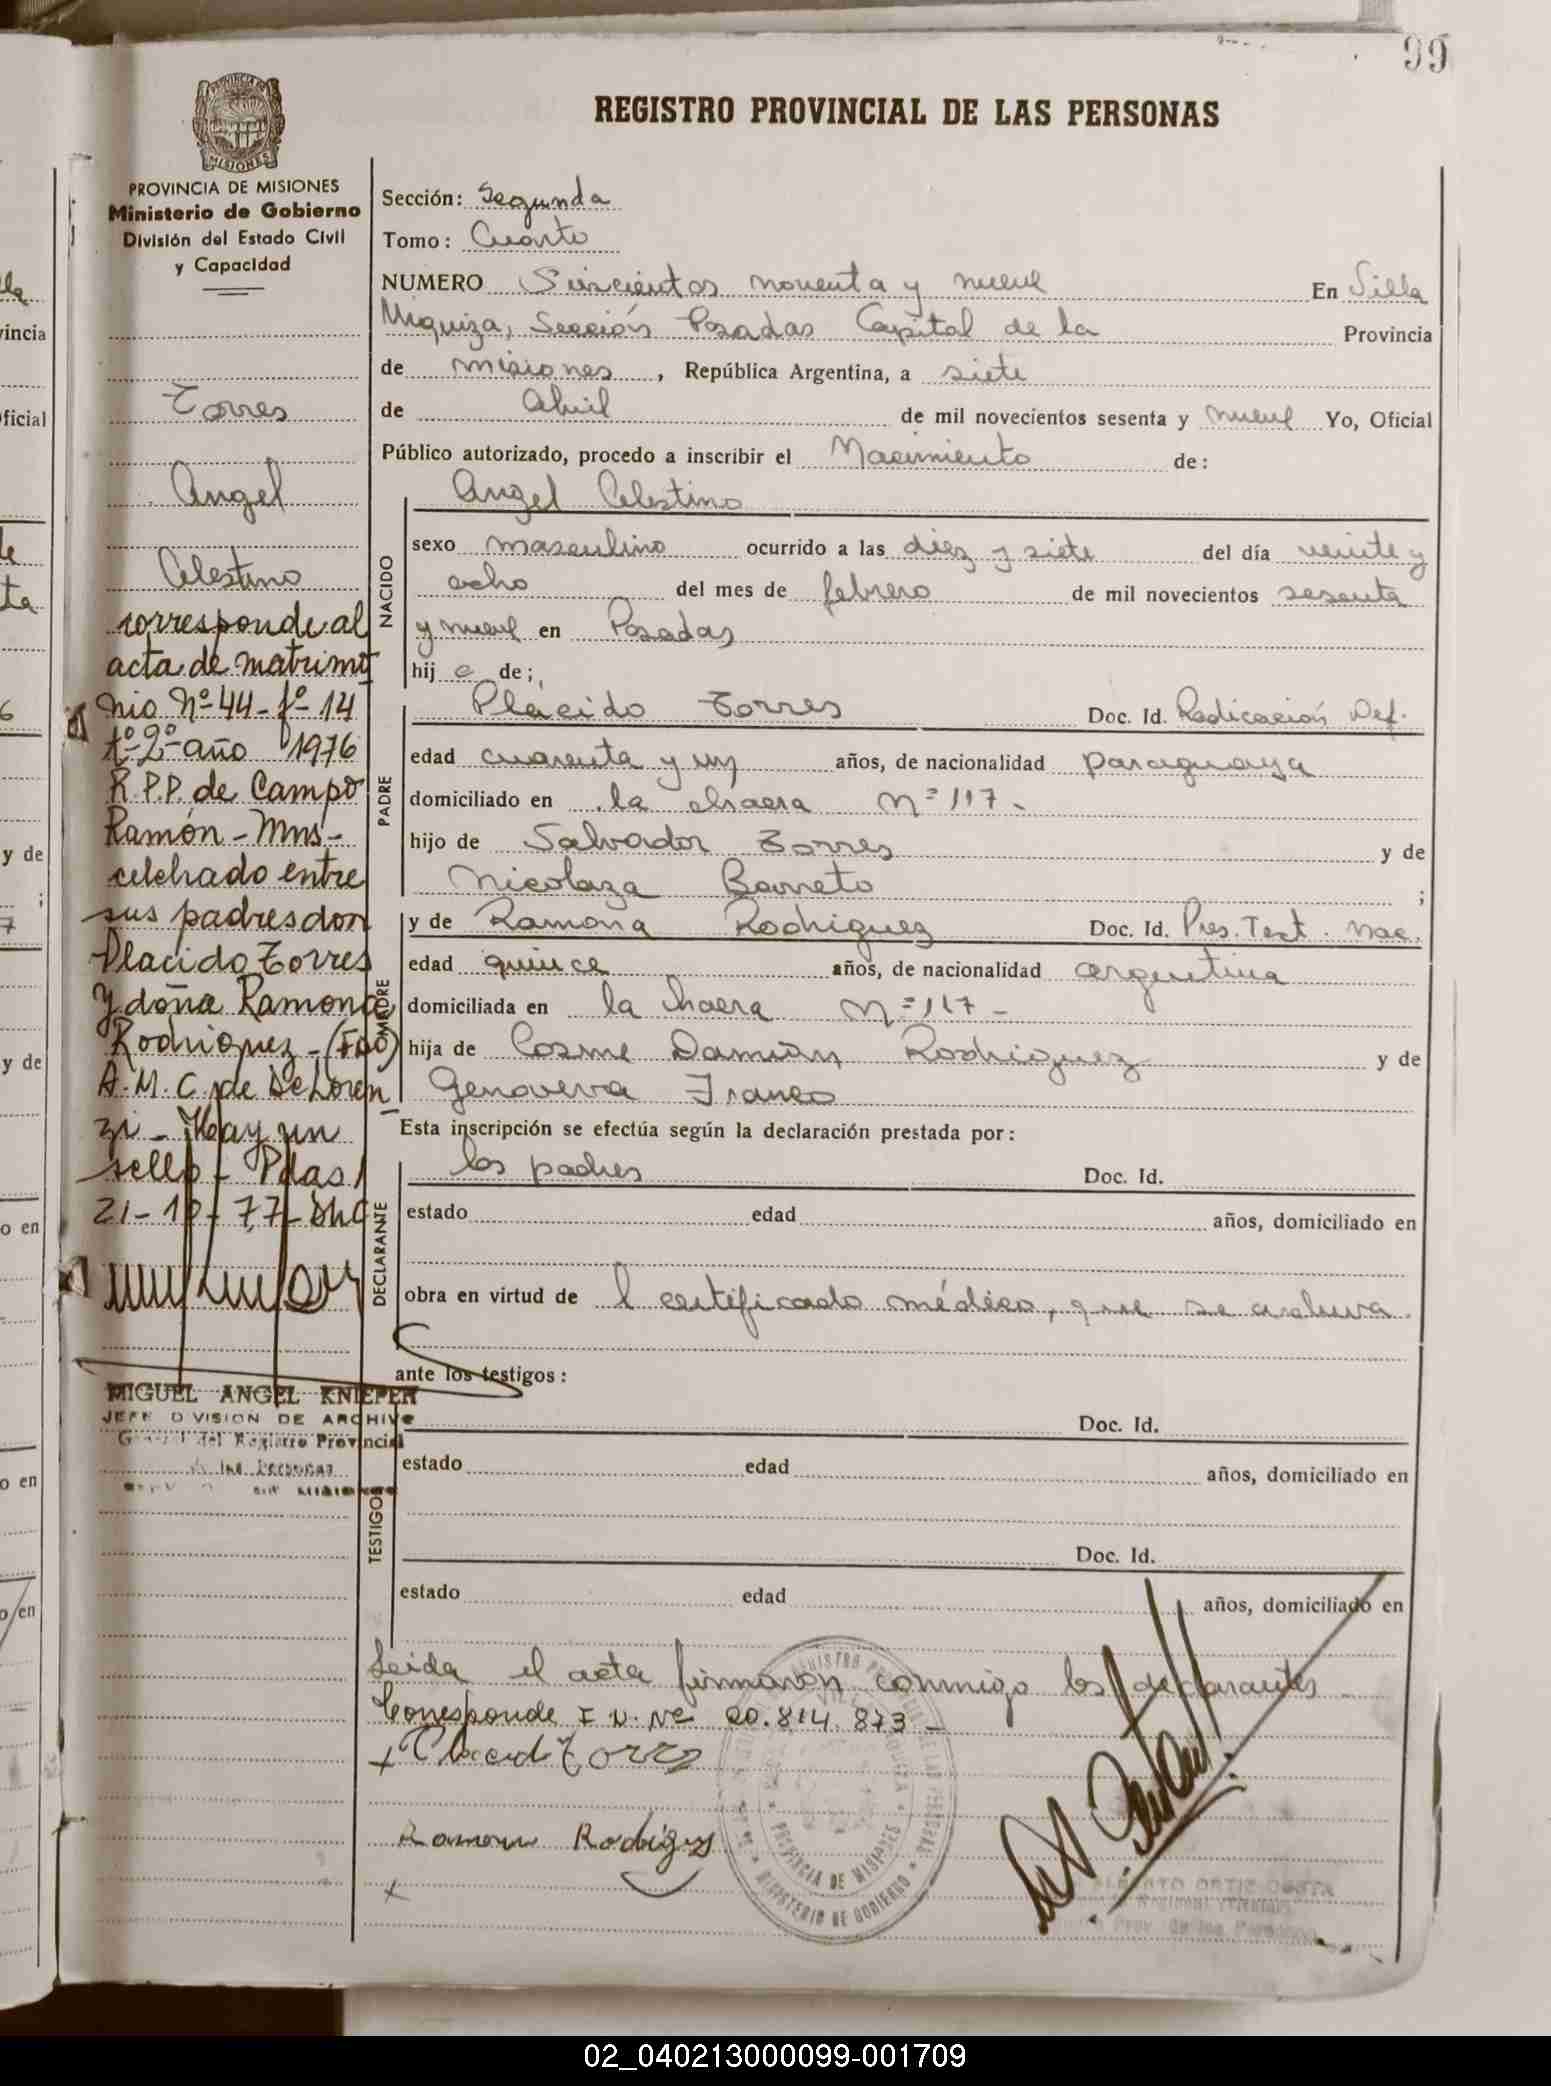 99
REGISTRO PROVINCIAL DE LAS PERSONAS
PROVINCIA DE MISIONES
Ministerio de Gobierno
División del Estado Civil
y Capacidad
Torres
Angel
Celestino
corresponde al
acta de matrimo
nio Nº 44 - fº 14
tº 2º año 1976
R.P.P. de Campo
Ramón - Mns -
celebrado entre
sus padres don
Placido Torres
y doña Ramona
Rodriguez - (Fdo)
A.M.C. de De Loren
zi - Hay un
sello - Pdas/
21-10-77-
MIGUEL ANGEL KNIEPER
JEFE DIVISION DE ARCHIVO
General del Registro Provincial
de las Personas
Sección: Segunda
Tomo: Cuarto
NUMERO Seiscientos noventa y nueve En Villa
Urquiza, Sección Posadas Capital de la Provincia
de misiones, República Argentina, a siete
de abril de mil novecientos sesenta y nueve Yo, Oficial
Público autorizado, procedo a inscribir el Nacimiento de:
Angel Celestino
NACIDO
sexo masculino ocurrido a las diez y siete del día veinte y
ocho del mes de febrero de mil novecientos sesenta
y nueve en Posadas
hij o de;
PADRE
Plácido Torres Doc. Id. Radicación Def.
edad cuarenta y un años, de nacionalidad paraguaya
domiciliado en la chacra Nº 117 -
hijo de Salvador Torres y de
Nicolaza Barreto ;
MADRE
y de Ramona Rodriguez Doc. Id. Pres. Test. Nac.
edad quince años, de nacionalidad argentina
domiciliada en la chacra Nº 117 -
hija de Cosme Damian Rodriguez y de
Genoveva Franco
Esta inscripción se efectúa según la declaración prestada por:
DECLARANTE
los padres Doc. Id.
estado edad años, domiciliado en
obra en virtud de l certificado médico, que se archiva.
ante los testigos:
TESTIGO
Doc. Id.
estado edad años, domiciliado en
Doc. Id.
estado edad años, domiciliado en
Leida el acta firmaron conmigo los declarantes -
Corresponde I.N. Nº 20.814.873 -
+ Placido Torres
Ramona Rodrigez
+
PROVINCIA DE MISIONES
MINISTERIO DE GOBIERNO
ALBERTO ORTIZ COSTA
Prov. de las Personas
02_040213000099-001709